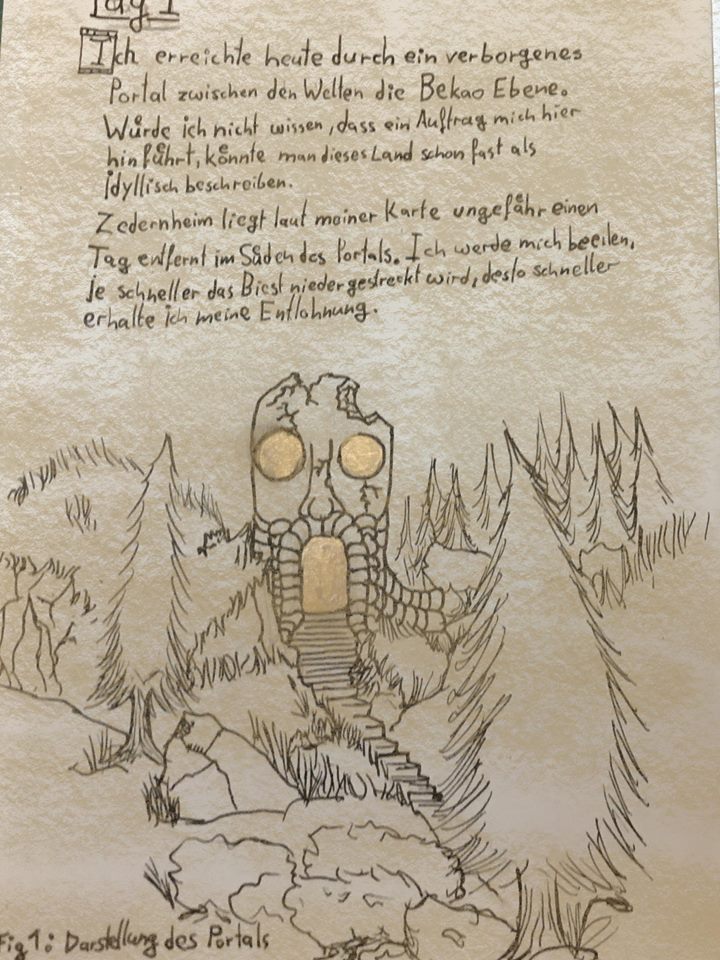 Tag 1
Ich erreichte heute durch ein verborgenes
Portal zwischen den Welten die Bekao Ebene.
Würde ich nicht wissen, dass ein Auftrag mich hier
hin führt, könnte man dieses Land schon fast als
idyllisch beschreiben.
Zedernheim liegt laut meiner Karte ungefähr einen
Tag entfernt im Süden des Portals. Ich werde mich beeilen,
je schneller das Biest niedergestreckt wird, desto schneller
erhalte ich meine Entlohnung.
Fig 1: Darstellung des Portals